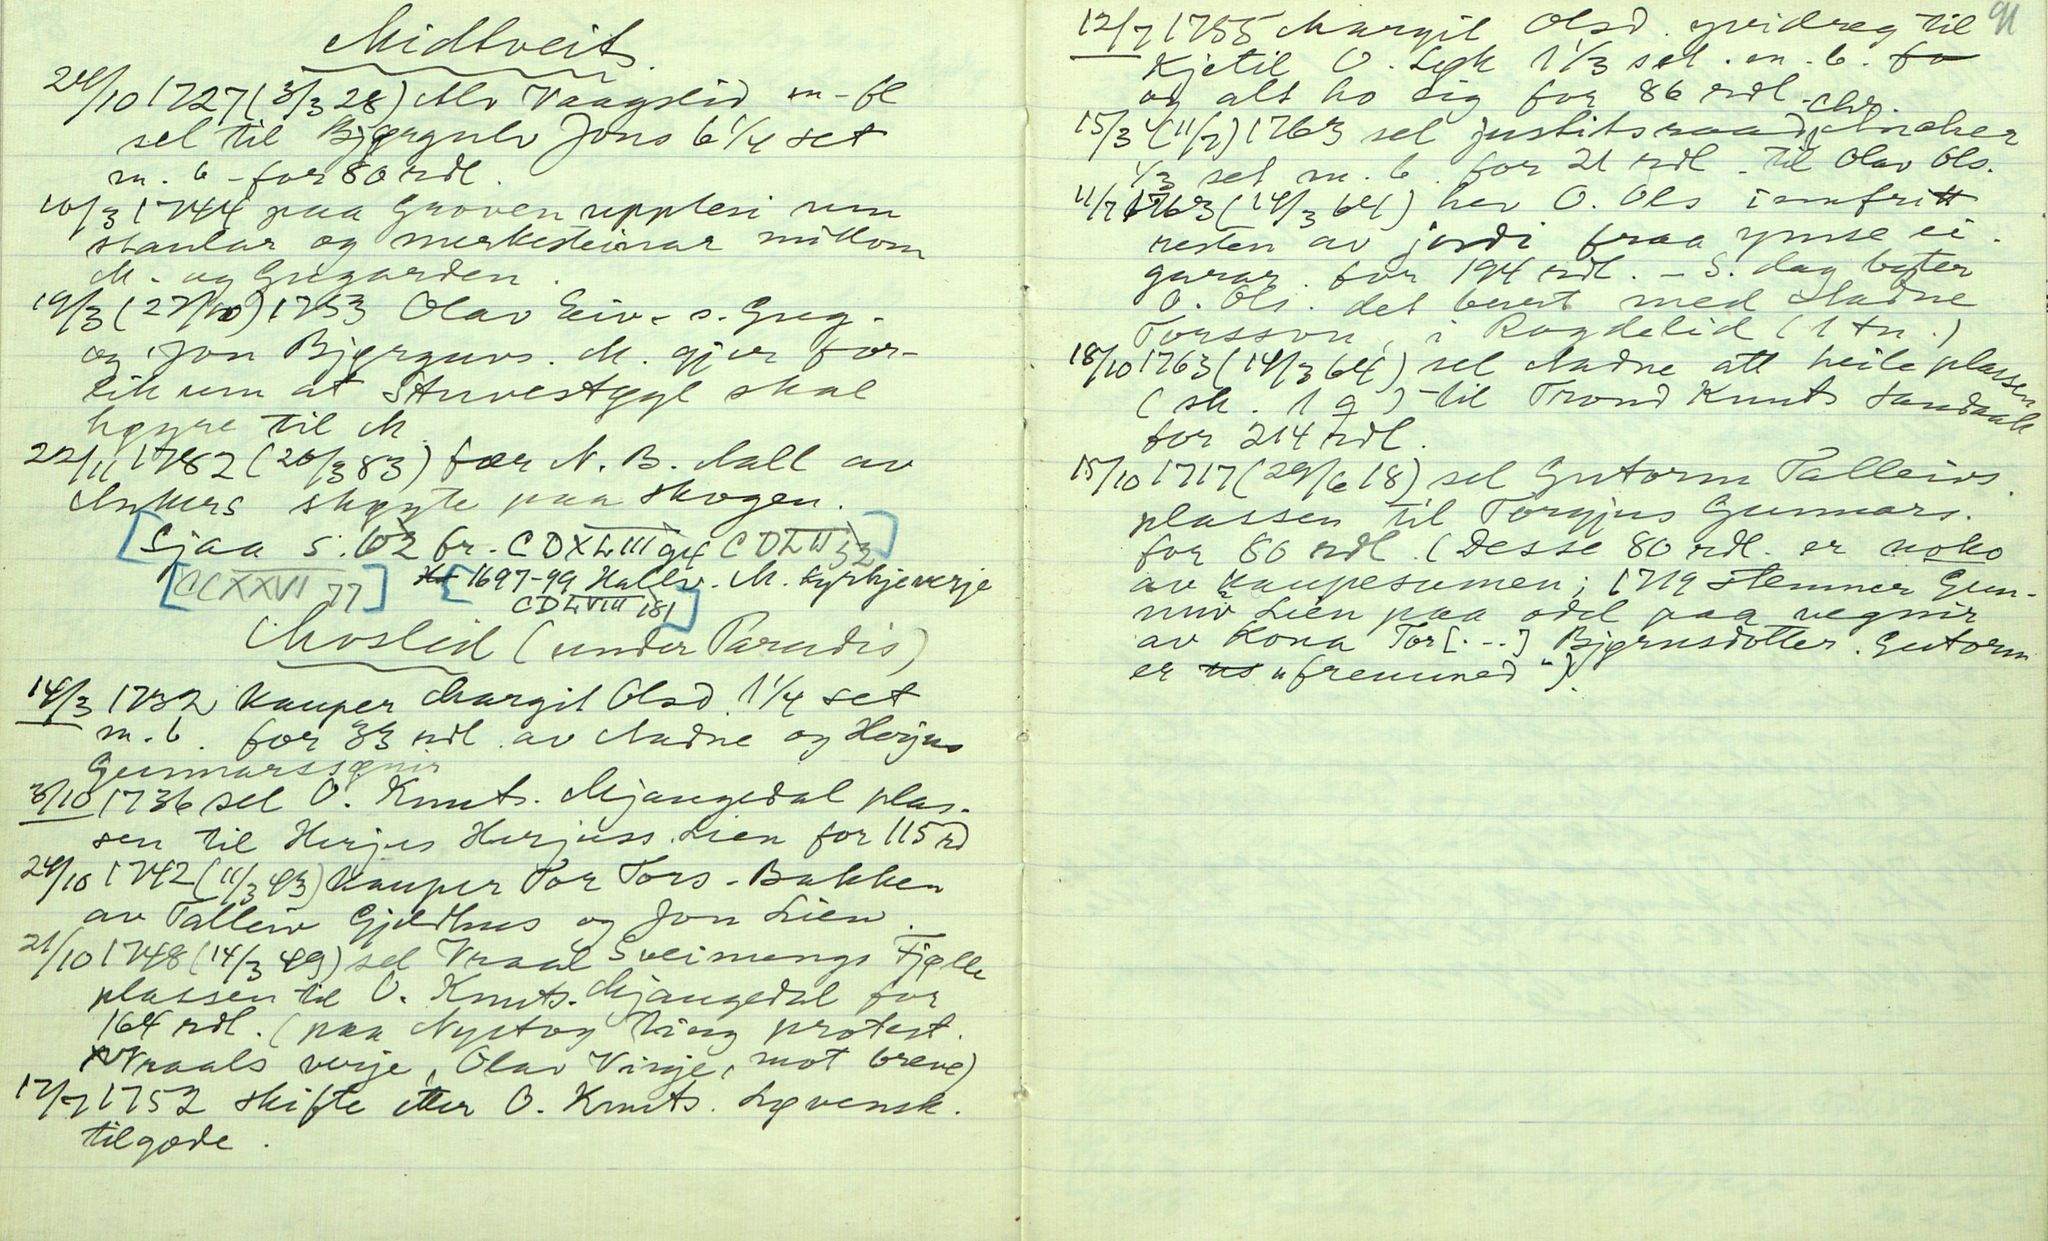 Midtveit
24/10 1727 (3/3 28) Alv Vaagslid m-fl
sel til Bjørgulv Jons 6 1/4 set
m. b - for 80 rdl.
10/3 1744 paa Groven upplesi um
skanlar og merkesteinar millom
M- og Grigarden.
19/3 (27/10) 1753 Olav Eiv- s. Grig-
og Jon Bjørguvs. M. gjer for-
lik um at Stuvestøyl skal
høyre til M
22/11 1782 (20/3 83) fær N. B. Aall av
Ankers skøyte paa skogen.
[Sjaa s. 102 br. CDXLIII 94 CDLII 32]
[CCXXVI 77] [1697-99 Hallv. M. kyrkjeverje
CDLVIII 181]
Moslid (under Paradis)
14/3 1732 kauper Margit Olsd. 1 1/4 set
m. b. for 33 rdl. av Aadne og Herjus
Gunnarssønir
3/10 1736 sel O. Knuts. Mjaugedal plas-
sen til Herjus Herjuss. Lien for 115 rd
24/10 1742 (11/3 43) kauper Tor Tors - Bakken
av Talleiv Gjeldhus og Jon Lien.
21/10 1748 (14/3 49) sel Vraal Sveinungs Fjølle
plassen til O. Knuts. Mjaugedal for
164 rdl. (paa Nystog ting protest.
Vraals verje, Olav Vinje, mot breve)
17/7 1752 skifte etter O. Knuts. Løvensk.
tilgode.
91
12/7 1755 Margit Olsd. yvidreg til
Kjetil O. Løk 1 1/3 set. m. b. fo
og alt ho eig for 86 rdl.
15/3 (11/7) 1763 sel justitsraad Chr. Ancher
1/3 set m. b. for 21 rdl. til Olav Ols.
11/7 1763 (14/3 64) hev O. Ols innfritt
resten av jordi fraa ymse ei-
garar for 194 rdl. - S. dag byter
O. Ols. det burt med Aadne
Torsson, i Rogdelid (1 tn.)
18/10 1763 (14/3 64) sel Aadne att heile plassen
(sk. 1 g) til Trond Knuts Haudaali
for 214 rdl.
15/10 1717 (29/6 18) sel Gutorm Talleivs.
plassen til Torgjus Gunnars.
for 80 rdl. (Desse 80 rdl. er noko
av kaupesumen; 1719 stemner Gun-
nuv Lien paa odel paa vegnir
av kona Tor[...] Bjørnsdotter. Gutorm
er us "fremmed").